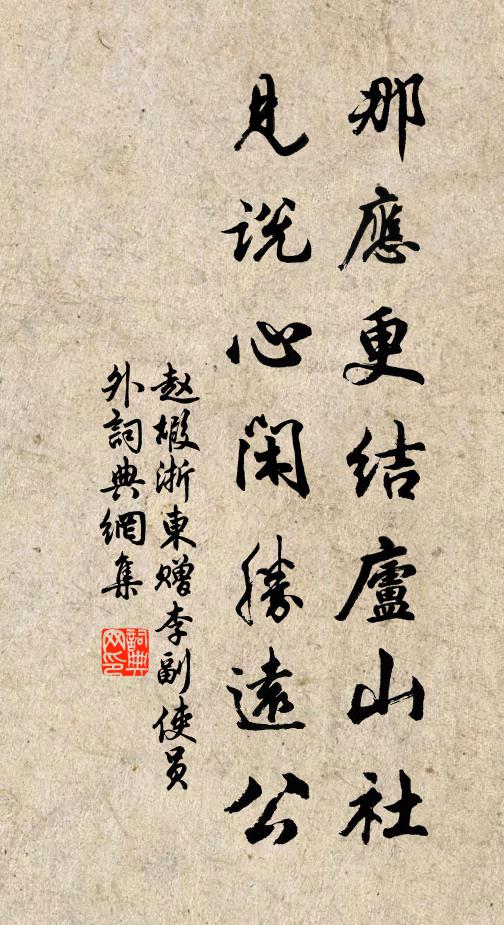 那應更結廬山社
見說心閑勝遠公
赵嘏浙東赠李副使员
外詞典網集
詞典
网印